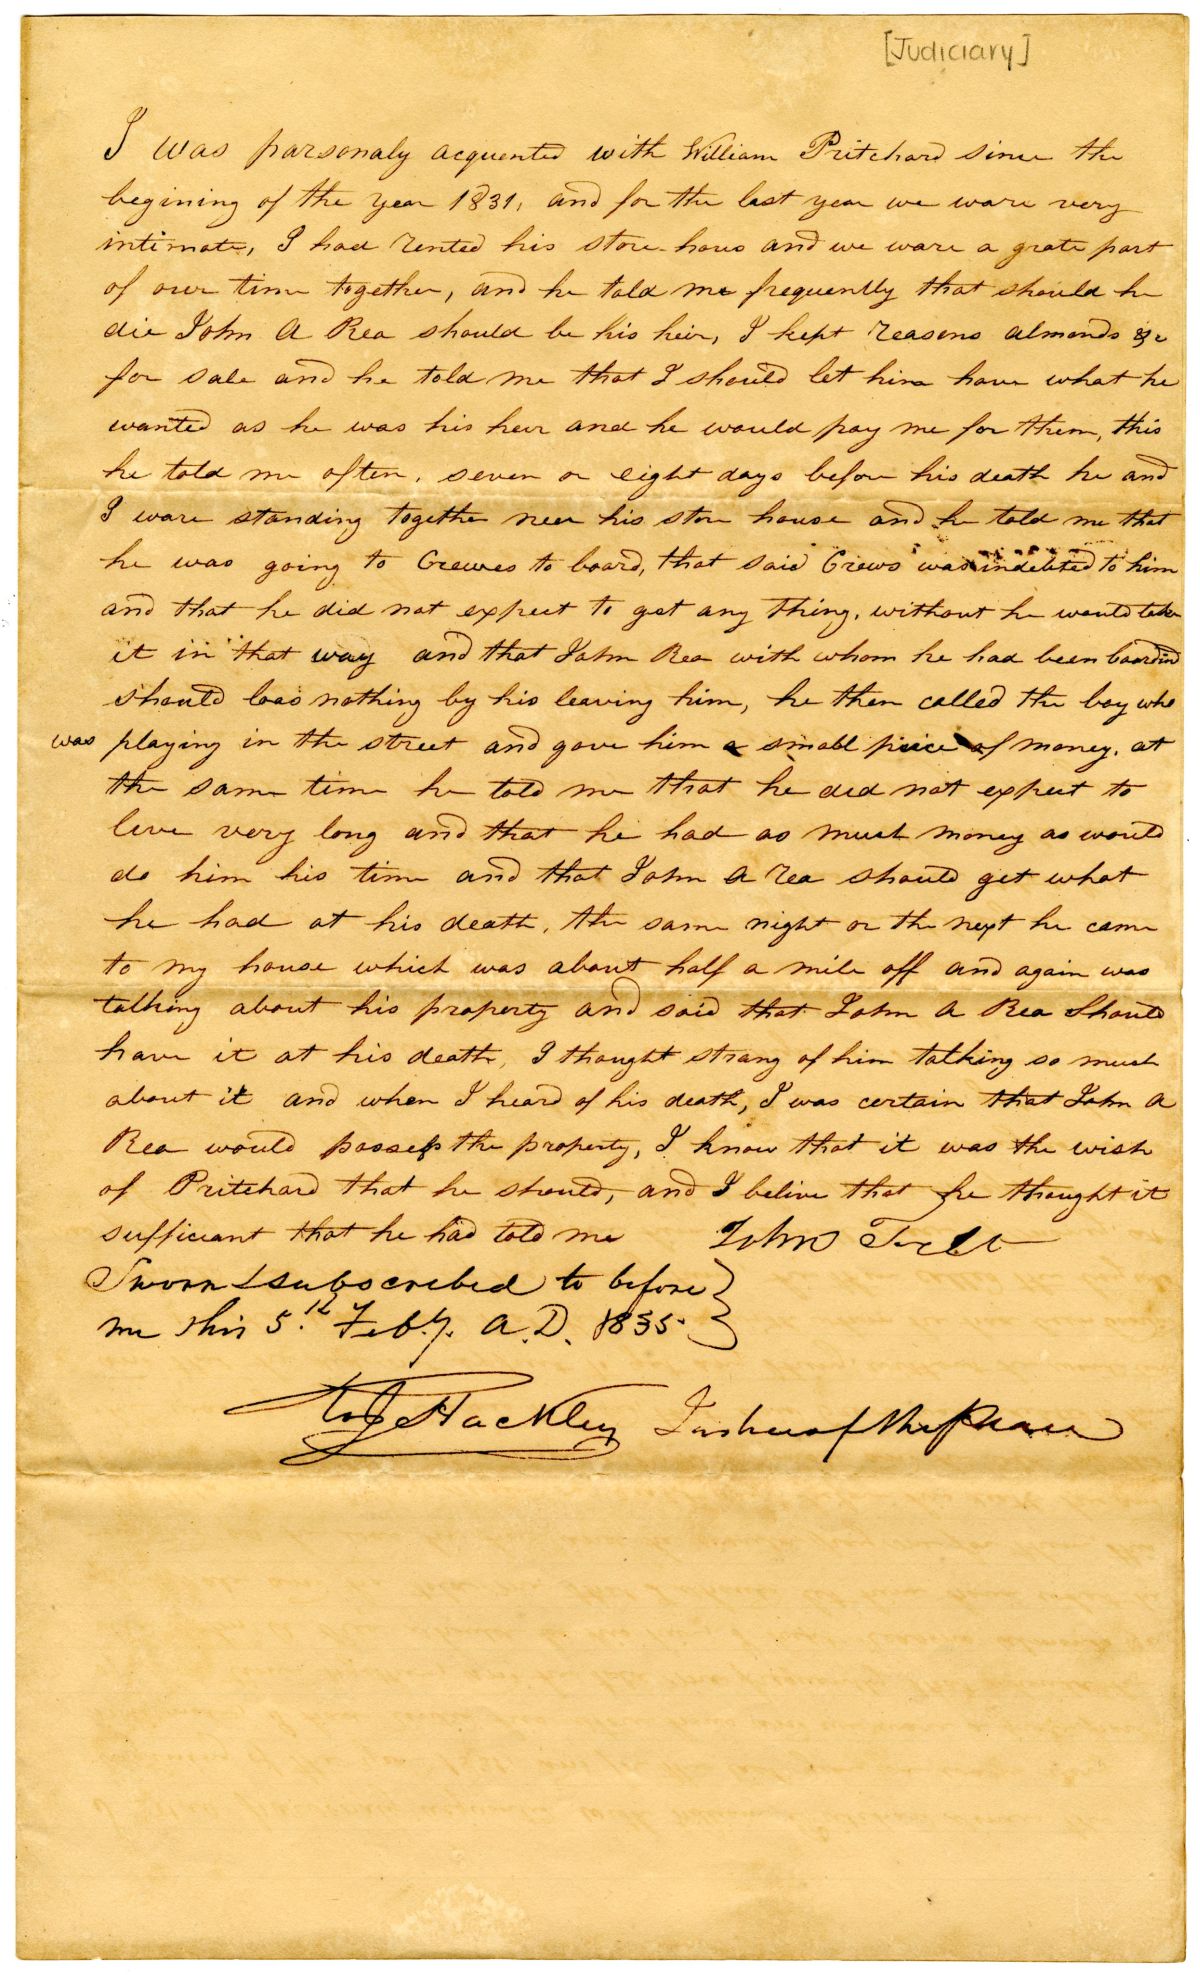 [Judiciary]
I was parsonaly acquented with William Pritchard since the
begining of the year 1831, and for the last year we ware very
intimate, I had rented his store hous and we ware a grate part
of our time together, and he told me frequently that should he
die John A Rea should be his heir, I kept reasons almonds &c
for sale and he told me that I should let him have what he
wanted as he was his heir and he would pay me for them, this
he told me often, seven or eight days before his death he and
I ware standing together near his store house and he told me that
he was going to Crewes to board, that said Crews was indebted to him
and that he did not expect to get any thing, without he would take
it in that way and that John Rea with whom he had been boardind
should loas nothing by his leaving him, he then called the boy who
was playing in the street and gave him a small piece of money. at
the same time he told me that he did not expect to
live very long and that he had as much money as would
do him his time and that John A rea should get what
he had at his death, the same night or the next he came
to my house which was about half a mile off and again was
talking about his property and said that John A Rea Should
have it at his death, I thought strang of him talking so much
about it and when I heard of his death, I was certain that John A
Rea would possess the property, I know that it was the wish
of Pritchard that he should, and I belive that he thought it
sufficiant that he had told me John
Sworn & subscribed to before
me this 5.th Feby. A.D. 1835.
Hackley Justice of the Peace